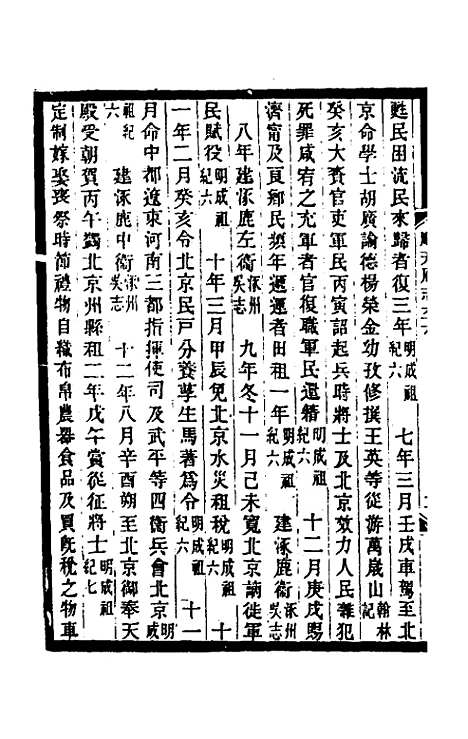 甦民田流民來歸者復三年明成祖紀六 七年三月壬戌車駕至北
京命學士胡廣諭德楊榮金幼孜修撰王英等從游萬歲山翰林記
癸亥大賚官吏軍民丙寅詔起兵時將士及北京效力人民雜犯
死罪咸宥之充軍者官復職軍民還籍明成祖紀六 十二月庚戌賜
濟甯及良鄉民頻年遞運者田租一年明成祖紀六 建涿鹿衞涿州吳志
八年建涿鹿左衞涿州吳志 九年冬十一月己未寬北京謫徙軍
民賦役明成祖紀六 十年三月甲辰免北京水災租稅明成祖紀六 十
一年二月癸亥令北京民戶分養孳生馬著爲令明成祖紀六 十一
月命中都遼東河南三都指揮使司及武平等四衞兵會北京明成
祖紀六 建涿鹿中衞涿州吳志 十二年八月辛酉朔至北京御奉天
殿受朝賀丙午蠲北京州縣租二年戊午賞從征將士明成祖紀七
定制嫁娶喪祭時節禮物自織布帛農器食品及買旣稅之物車